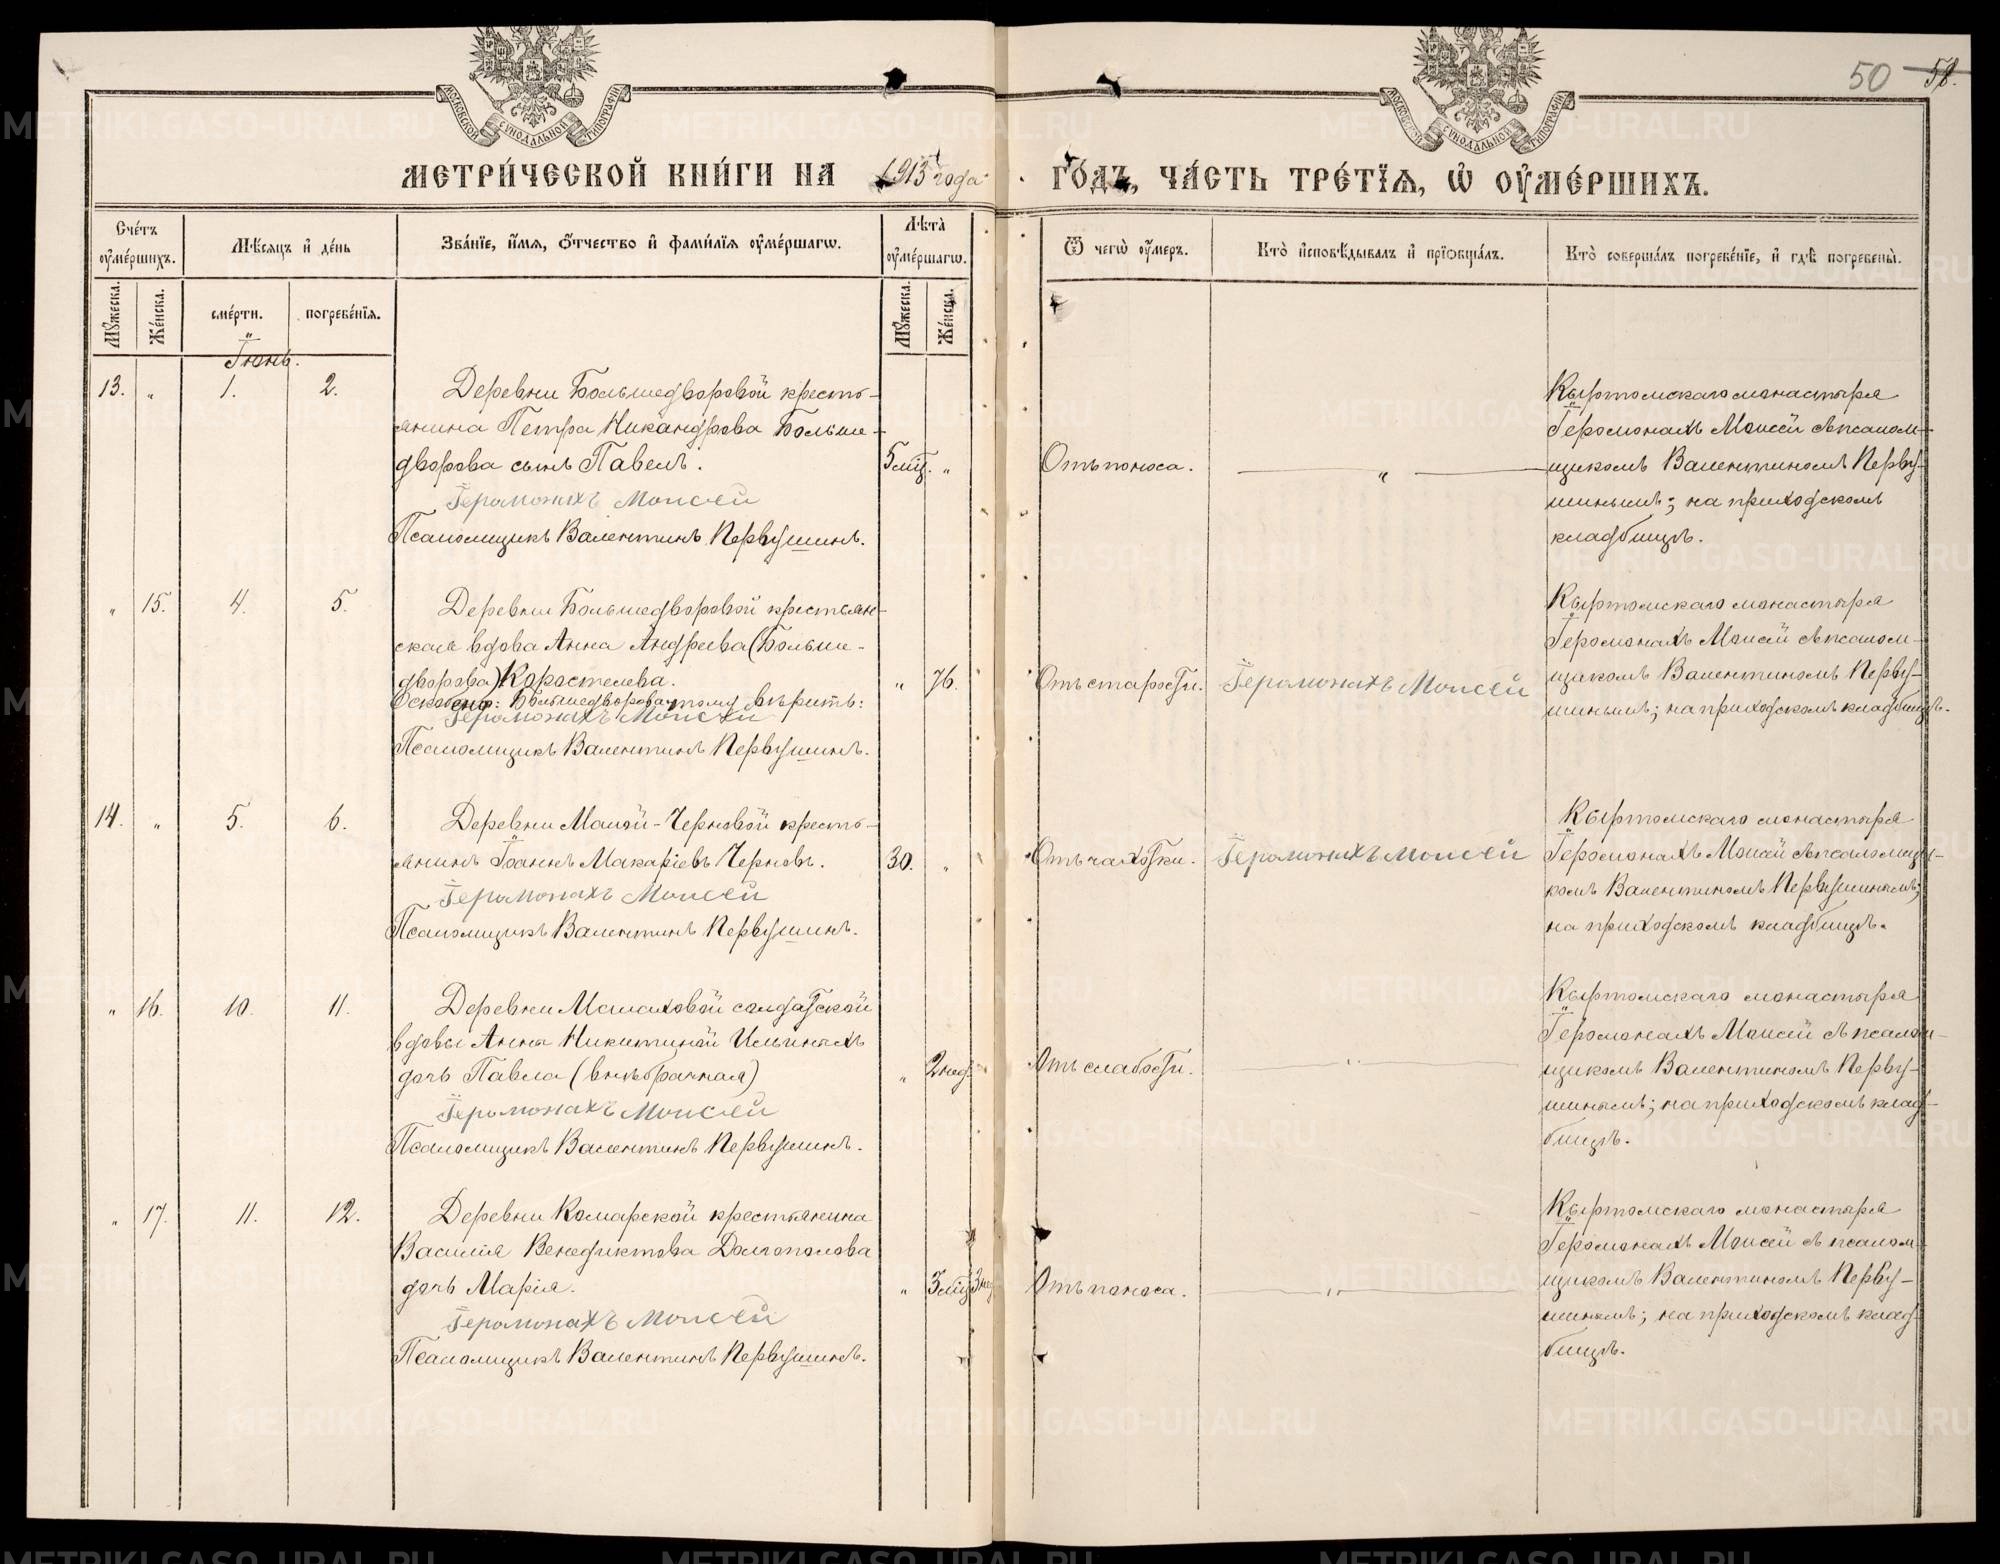 50 58.
МОСКОВСКОЙ СУНОДАЛЬНОЙ ТИПОГРАФІИ
МОСКОВСКОЙ СУНОДАЛЬНОЙ ТИПОГРАФІИ
МЕТРИ́ЧЕСКОЙ КНИ́ГИ НА 1913 года
ГО́ДЪ, ЧА́СТЬ ТРЕ́ТІѦ, Ѡ ОУ҆МЕ́РШИХЪ.
Сче́тъ оу҆ме́ршихъ.
Мѣ́сяцъ и҆ де́нь
Зва́нїе, и҆́мѧ, ѻ҆́тчество и҆ фами́лїѧ оу҆ме́ршагѡ.
Лѣ́та оу҆ме́ршагѡ.
Ѿ чегѡ̀ оу҆́меръ.
Кто̀ и҆сповѣ́дывалъ и҆ прїѡбща́лъ.
Кто̀ соверша́лъ погребе́нїе, и҆ гдѣ̀ погребены̀.
Мꙋ́жеска.
Же́нска.
сме́рти.
погребе́нїѧ.
Мꙋ́жеска.
Же́нска.
Іюнь.
13. " 1. 2.
Деревни Большедворовой кресть-
янина Петра Никандрова Больше-
дворова сынъ Павелъ.
Іеромонахъ Моисей
Псаломщикъ Валентинъ Первушинъ.
5 мѣс. "
Отъ поноса.
"
Кыртомскаго монастыря
Іеромонахъ Моисей съ псалом-
щикомъ Валентиномъ Перву-
шинымъ; на приходскомъ
кладбищѣ.
" 15. 4. 5.
Деревни Большедворовой крестьян-
ская вдова Анна Андреева (Больше-
дворова) Коростелева.
Оскоблено: Большедворова, тому вѣрить:
Іеромонахъ Моисей
Псаломщикъ Валентинъ Первушинъ.
" 76.
Отъ старости.
Іеромонахъ Моисей
Кыртомскаго монастыря
Іеромонахъ Моисей съ псалом-
щикомъ Валентиномъ Перву-
шинымъ; на приходскомъ кладбищѣ.
14. " 5. 6.
Деревни Малой-Черновой кресть-
янинъ Іоаннъ Макаріевъ Черновъ.
Іеромонахъ Моисей
Псаломщикъ Валентинъ Первушинъ.
30. "
Отъ чахотки.
Іеромонахъ Моисей
Кыртомскаго монастыря
Іеромонахъ Моисей съ псаломщи-
комъ Валентиномъ Первушинымъ;
на приходскомъ кладбищѣ.
" 16. 10. 11.
Деревни Малаховой солдатской
вдовы Анны Никитиной Ильиныхъ
дочь Павла (внѣбрачная)
Іеромонахъ Моисей
Псаломщикъ Валентинъ Первушинъ.
" 2 нед.
Отъ слабости.
"
Кыртомскаго монастыря
Іеромонахъ Моисей съ псалом-
щикомъ Валентиномъ Перву-
шинымъ; на приходскомъ клад-
бищѣ.
" 17. 11. 12.
Деревни Комарской крестьянина
Василія Венедиктова Долгополова
дочь Марія.
Іеромонахъ Моисей
Псаломщикъ Валентинъ Первушинъ.
" 3 мѣс.
Отъ поноса.
"
Кыртомскаго монастыря
Іеромонахъ Моисей съ псалом-
щикомъ Валентиномъ Перву-
шинымъ; на приходскомъ клад-
бищѣ.
METRIKI.GASO-URAL.RU